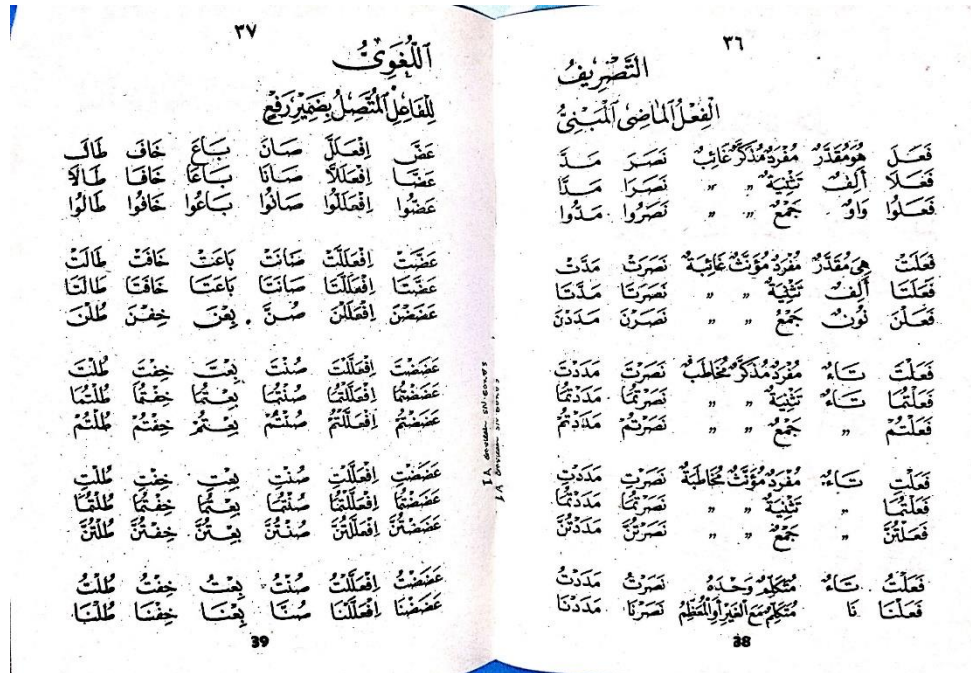 ٣٦
التَّصْرِيفُ
الْفِعْلُ الْمَاضِى الْمَبْنِىُّ
فَعَلَ هُوَ مُقَدَّرٌ مُفْرَدٌ مُذَكَّرٌ غَائِبٌ نَصَرَ مَدَّ
فَعَلَا أَلِفٌ تَثْنِيَةٌ " " نَصَرَا مَدَّا
فَعَلُوا وَاوٌ جَمْعٌ " " نَصَرُوا مَدُّوا
فَعَلَتْ هِيَ مُقَدَّرٌ مُفْرَدٌ مُؤَنَّثٌ غَائِبَةٌ نَصَرَتْ مَدَّتْ
فَعَلَتَا أَلِفٌ تَثْنِيَةٌ " " نَصَرَتَا مَدَّتَا
فَعَلْنَ نُونٌ جَمْعٌ " " نَصَرْنَ مَدَدْنَ
فَعَلْتَ تَاءٌ مُفْرَدٌ مُذَكَّرٌ مُخَاطَبٌ نَصَرْتَ مَدَدْتَ
فَعَلْتُمَا تَاءٌ تَثْنِيَةٌ " " نَصَرْتُمَا مَدَدْتُمَا
فَعَلْتُمْ " جَمْعٌ " " نَصَرْتُمْ مَدَدْتُمْ
فَعَلْتِ تَاءٌ مُفْرَدٌ مُؤَنَّثٌ مُخَاطَبَةٌ نَصَرْتِ مَدَدْتِ
فَعَلْتُمَا " تَثْنِيَةٌ " " نَصَرْتُمَا مَدَدْتُمَا
فَعَلْتُنَّ " جَمْعٌ " " نَصَرْتُنَّ مَدَدْتُنَّ
فَعَلْتُ تَاءٌ مُتَكَلِّمٌ وَحْدَهُ نَصَرْتُ مَدَدْتُ
فَعَلْنَا نَا مُتَكَلِّمٌ مَعَ الْغَيْرِ أَوِ الْمُعَظِّمُ نَصَرْنَا مَدَدْنَا
38
٣٧
اَللُّغَوِىُّ
لِلْفَاعِلِ الْمُتَّصِلُ بِضَمِيْرِ رَفْعٍ
عَضَّ اِفْعَلَلَّ صَانَ بَاعَ خَافَ طَالَ
عَضَّا اِفْعَلَلَّا صَانَا بَاعَا خَافَا طَالَا
عَضُّوا اِفْعَلَلُّوا صَانُوا بَاعُوا خَافُوا طَالُوا
عَضَّتْ اِفْعَلَلَّتْ صَانَتْ بَاعَتْ خَافَتْ طَالَتْ
عَضَّتَا اِفْعَلَلَّتَا صَانَتَا بَاعَتَا خَافَتَا طَالَتَا
عَضَضْنَ اِفْعَلَلْنَ صُنَّ بِعْنَ خِفْنَ طُلْنَ
عَضَضْتَ اِفْعَلَلْتَ صُنْتَ بِعْتَ خِفْتَ طُلْتَ
عَضَضْتُمَا اِفْعَلَلْتُمَا صُنْتُمَا بِعْتُمَا خِفْتُمَا طُلْتُمَا
عَضَضْتُمْ اِفْعَلَلْتُمْ صُنْتُمْ بِعْتُمْ خِفْتُمْ طُلْتُمْ
عَضَضْتِ اِفْعَلَلْتِ صُنْتِ بِعْتِ خِفْتِ طُلْتِ
عَضَضْتُمَا اِفْعَلَلْتُمَا صُنْتُمَا بِعْتُمَا خِفْتُمَا طُلْتُمَا
عَضَضْتُنَّ اِفْعَلَلْتُنَّ صُنْتُنَّ بِعْتُنَّ خِفْتُنَّ طُلْتُنَّ
عَضَضْتُ اِفْعَلَلْتُ صُنْتُ بِعْتُ خِفْتُ طُلْتُ
عَضَضْنَا اِفْعَلَلْنَا صُنَّا بِعْنَا خِفْنَا طُلْنَا
39